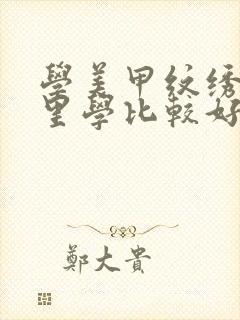 學美甲紋绣
里學比較好
鄭大貴